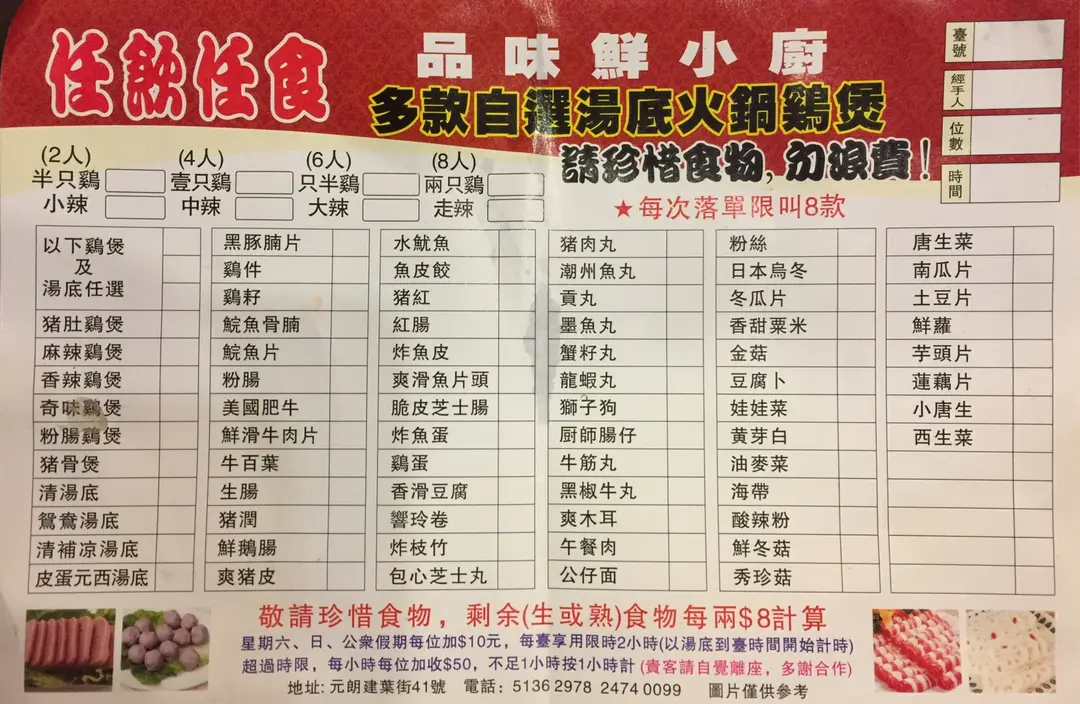 任飲任食
品味鮮小廚
多款自選湯底火鍋鷄煲
請珍惜食物,勿浪費!
★每次落單限叫8款
臺號
經手人
位數
時間
(2人) (4人) (6人) (8人)
半只鷄 壹只鷄 只半鷄 兩只鷄
小辣 中辣 大辣 走辣
以下鷄煲
及
湯底任選
猪肚鷄煲
麻辣鷄煲
香辣鷄煲
奇味鷄煲
粉腸鷄煲
猪骨煲
清湯底
鴛鴦湯底
清補凉湯底
皮蛋元西湯底
黑豚腩片
鷄件
鷄籽
鯇魚骨腩
鯇魚片
粉腸
美國肥牛
鮮滑牛肉片
牛百葉
生腸
猪潤
鮮鵝腸
爽猪皮
水魷魚
魚皮餃
猪紅
紅腸
炸魚皮
爽滑魚片頭
脆皮芝士腸
炸魚蛋
鷄蛋
香滑豆腐
響玲卷
炸枝竹
包心芝士丸
猪肉丸
潮州魚丸
貢丸
墨魚丸
蟹籽丸
龍蝦丸
獅子狗
厨師腸仔
牛筋丸
黑椒牛丸
爽木耳
午餐肉
公仔面
粉絲
日本烏冬
冬瓜片
香甜粟米
金菇
豆腐卜
娃娃菜
黄芽白
油麥菜
海帶
酸辣粉
鮮冬菇
秀珍菇
唐生菜
南瓜片
土豆片
鮮蘿
芋頭片
蓮藕片
小唐生
西生菜
敬請珍惜食物，剩余(生或熟)食物每兩$8計算
星期六、日、公衆假期每位加$10元，每臺享用限時2小時(以湯底到臺時間開始計時)
超過時限，每小時每位加收$50，不足1小時按1小時計(貴客請自覺離座，多謝合作)
地址: 元朗建葉街41號 電話: 5136 2978 2474 0099 圖片僅供參考